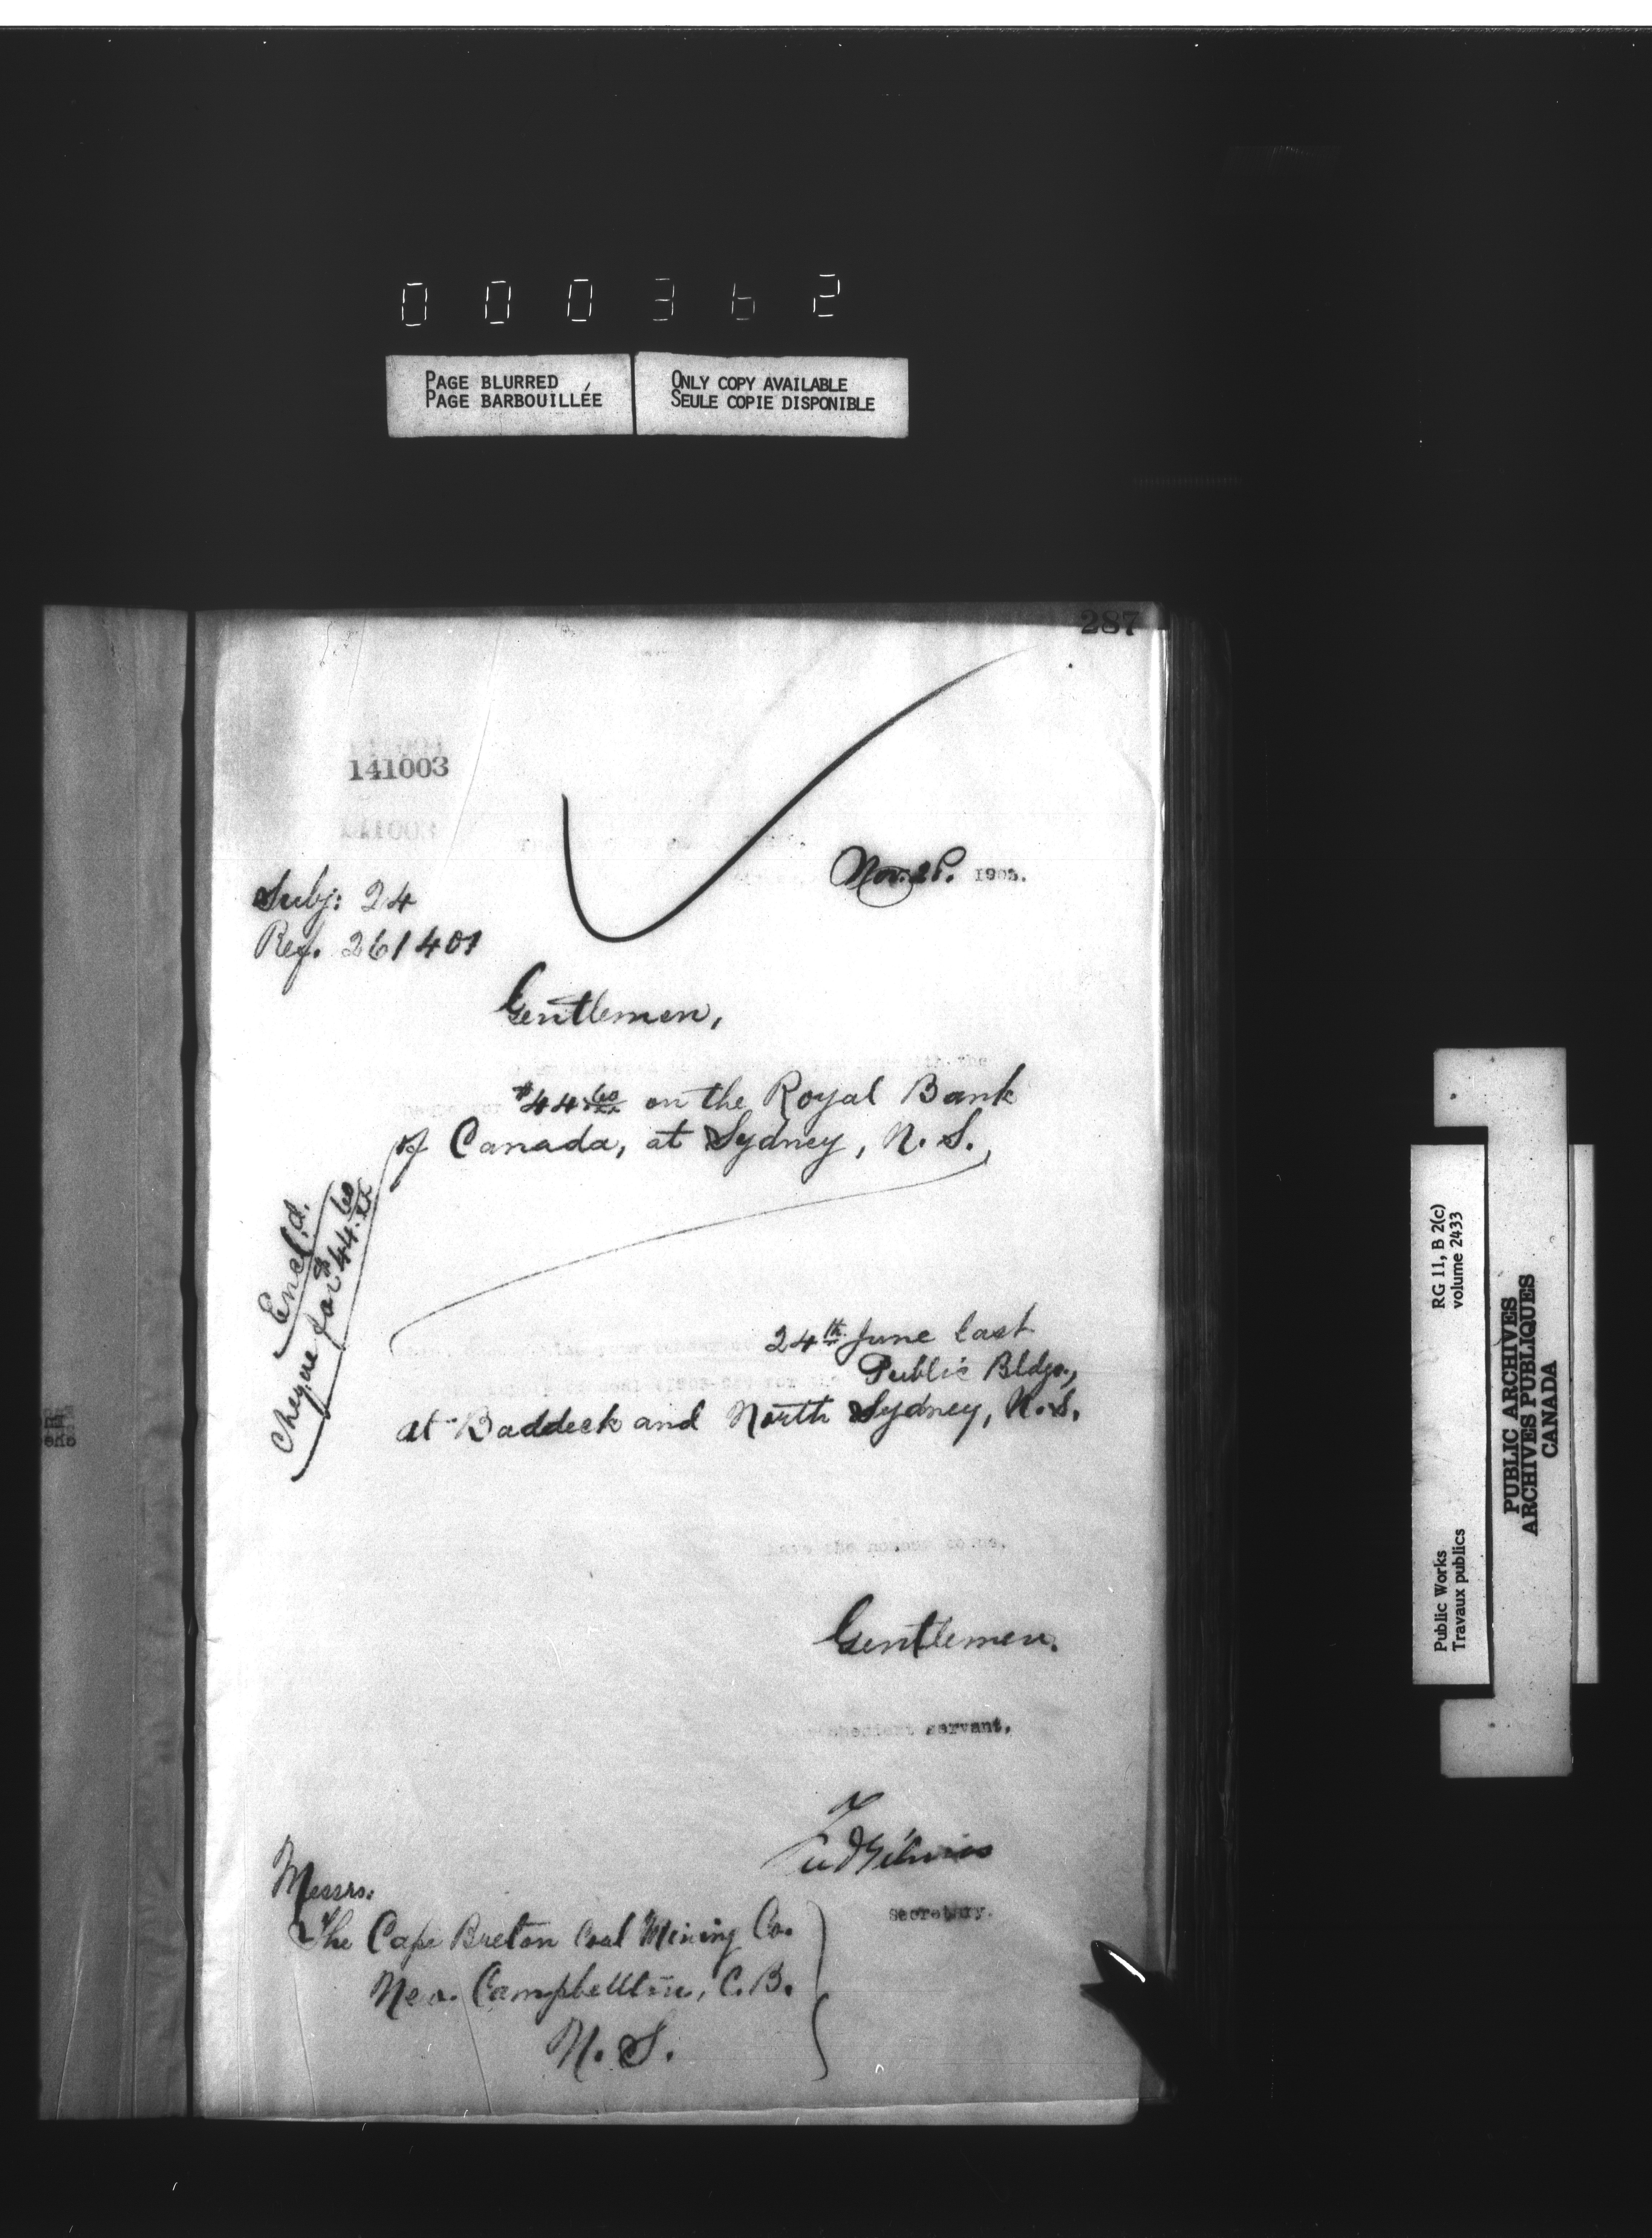 000362
PAGE BLURRED
PAGE BARBOUILLÉE
ONLY COPY AVAILABLE
SEULE COPIE DISPONIBLE
287
141003
141003
Nov. 28. 1905.
Subj: 24
Ref. 261401
Gentlemen,
the
$44.60/xx on the Royal Bank
of Canada, at Sydney, N. S.,
Encl'd.
Cheque for $44.60/xx
24th June last
for the Public Bldgs.,
at Baddeck and North Sydney, N. S.
have the honour to be,
Gentlemen.
obedient servant,
Secretary.
Messrs.
The Cape Breton Coal Mining Co.
New Campbellton, C. B.
N. S.
RG 11, B 2(c)
volume 2433
Public Works
Travaux publics
PUBLIC ARCHIVES
ARCHIVES PUBLIQUES
CANADA